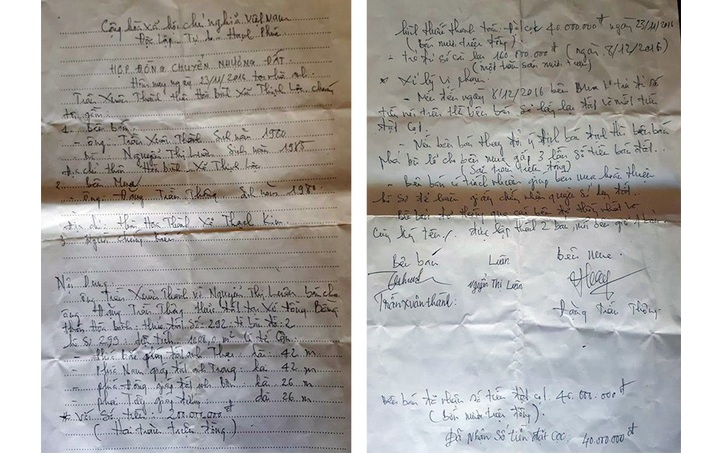 Cộng hòa xã hội chủ nghĩa Việt Nam
Độc Lập - Tự do - Hạnh Phúc
HỢP ĐỒNG CHUYỂN NHƯỢNG ĐẤT
Hôm nay ngày 23/11/2016 tại nhà anh
Trần Xuân Thành thôn Hòa bình xã Thạch Lộc, chúng
tôi gồm
1. bên bán
- ông: Trần Xuân Thành Sinh năm 1980
bà Nguyễn Thị Luân Sinh năm 1985
địa chỉ thôn Hòa bình xã Thạch Lộc
2 bên Mua
- ông: Đặng Trần Thống Sinh năm 1980
Địa chỉ thôn Hoa Thành Xã Thạch Kim
3 Người
Nội Dung
ông Trần Xuân Thành và Nguyễn Thị Luân bán cho
ông Đặng Trần Thống thửa đất tại Xứ đồng
thôn Hòa bình: thửa đất số: 292 tờ bản đồ: 2
diện tích: m có tứ cận:
- phía bắc giáp dài 42 m
- phía Nam giáp dài 42 m
- phía đông giáp dài 26 m
- phía Tây giáp dài 26 m
* Với Số tiền 200.000.000đ
(Hai trăm triệu đồng)
hình thức thanh toán - Đặt cọc 40.000.000đ ngày 23/11/2016
(bốn mươi triệu đồng)
- trả đủ số còn lại 160.000.000đ (ngày 8/12/2016)
(một trăm sáu mươi triệu)
* Xử lý vi phạm
- Nếu đến ngày 8/12/2016 bên Mua k trả đủ số
tiền nói trên thì bên bán sẽ lấy lại đất và mất tiền
đặt cọc
- Nếu bên bán thay đổi ý định bán đất thì bên bán
phải bồi cho bên mua gấp 3 lần số tiền bán đất
(Sáu trăm triệu đồng)
- Bên bán có trách nhiệm giúp bên mua hoàn thiện
hồ sơ để làm giấy chứng nhận quyền sử dụng đất
cùng ký tên. được lập thành 2 bản mỗi bên giữ 1 bản
Bên bán Luân bên mua
Nguyễn Thị Luân
Trần Xuân Thành Đặng Trần Thống
bên bán đã nhận số tiền đặt cọc 40.000.000đ
(bốn mươi triệu đồng)
Đã Nhận Số tiền đặt cọc 40.000.000đ